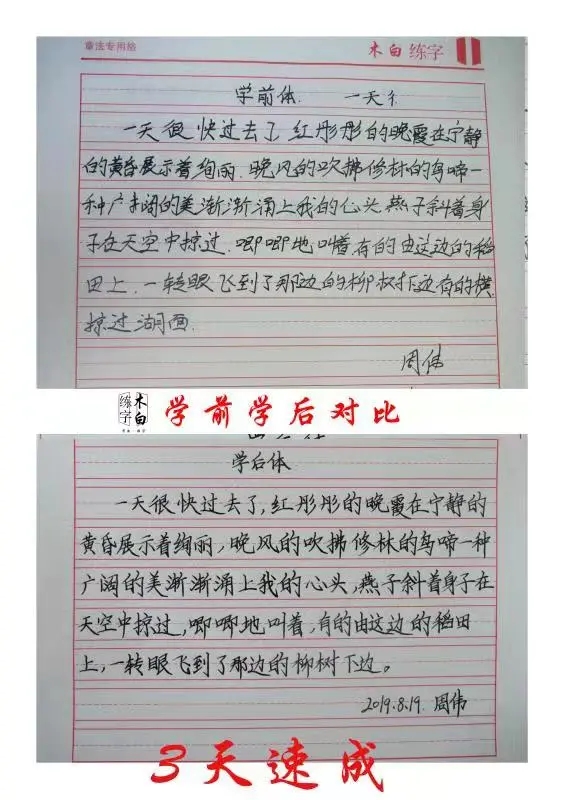 章法专用纸 木白 练字
学前体. 一天
一天很快过去了 红彤彤的晚霞在宁静
的黄昏展示着绚丽.晚风的吹拂修林的鸟啼一
种广阔的美渐渐涌上我的心头.燕子斜着身
子在天空中掠过.唧唧地叫着.有的由这边的稻
田上.一转眼飞到了那边的柳树下边有的横
掠过湖面.
周伟
练字 木白
学前学后对比
学后体
一天很快过去了,红彤彤的晚霞在宁静的
黄昏展示着绚丽,晚风的吹拂修林的鸟啼一种
广阔的美渐渐涌上我的心头,燕子斜着身子在
天空中掠过,唧唧地叫着,有的由这边的稻田
上,一转眼飞到了那边的柳树下边。
2019.8.19. 周伟
3天速成